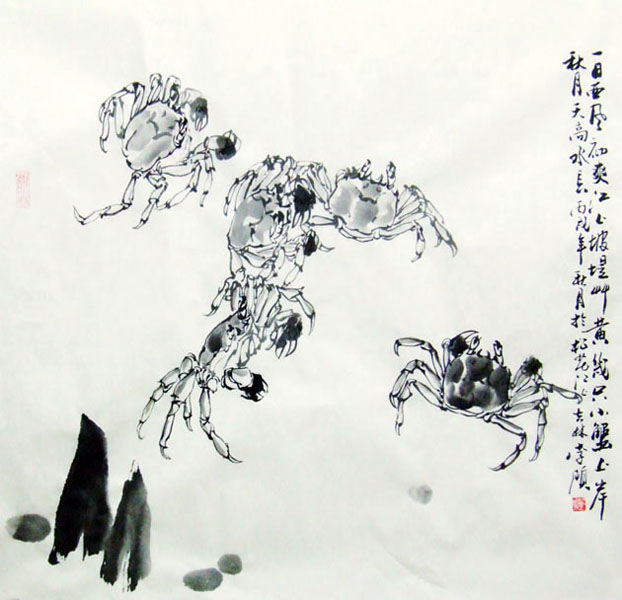 一日西风初爽江上坡堤草黄几只小蟹上岸
秋月天高水长丙戌年秋月于松花江吉林李